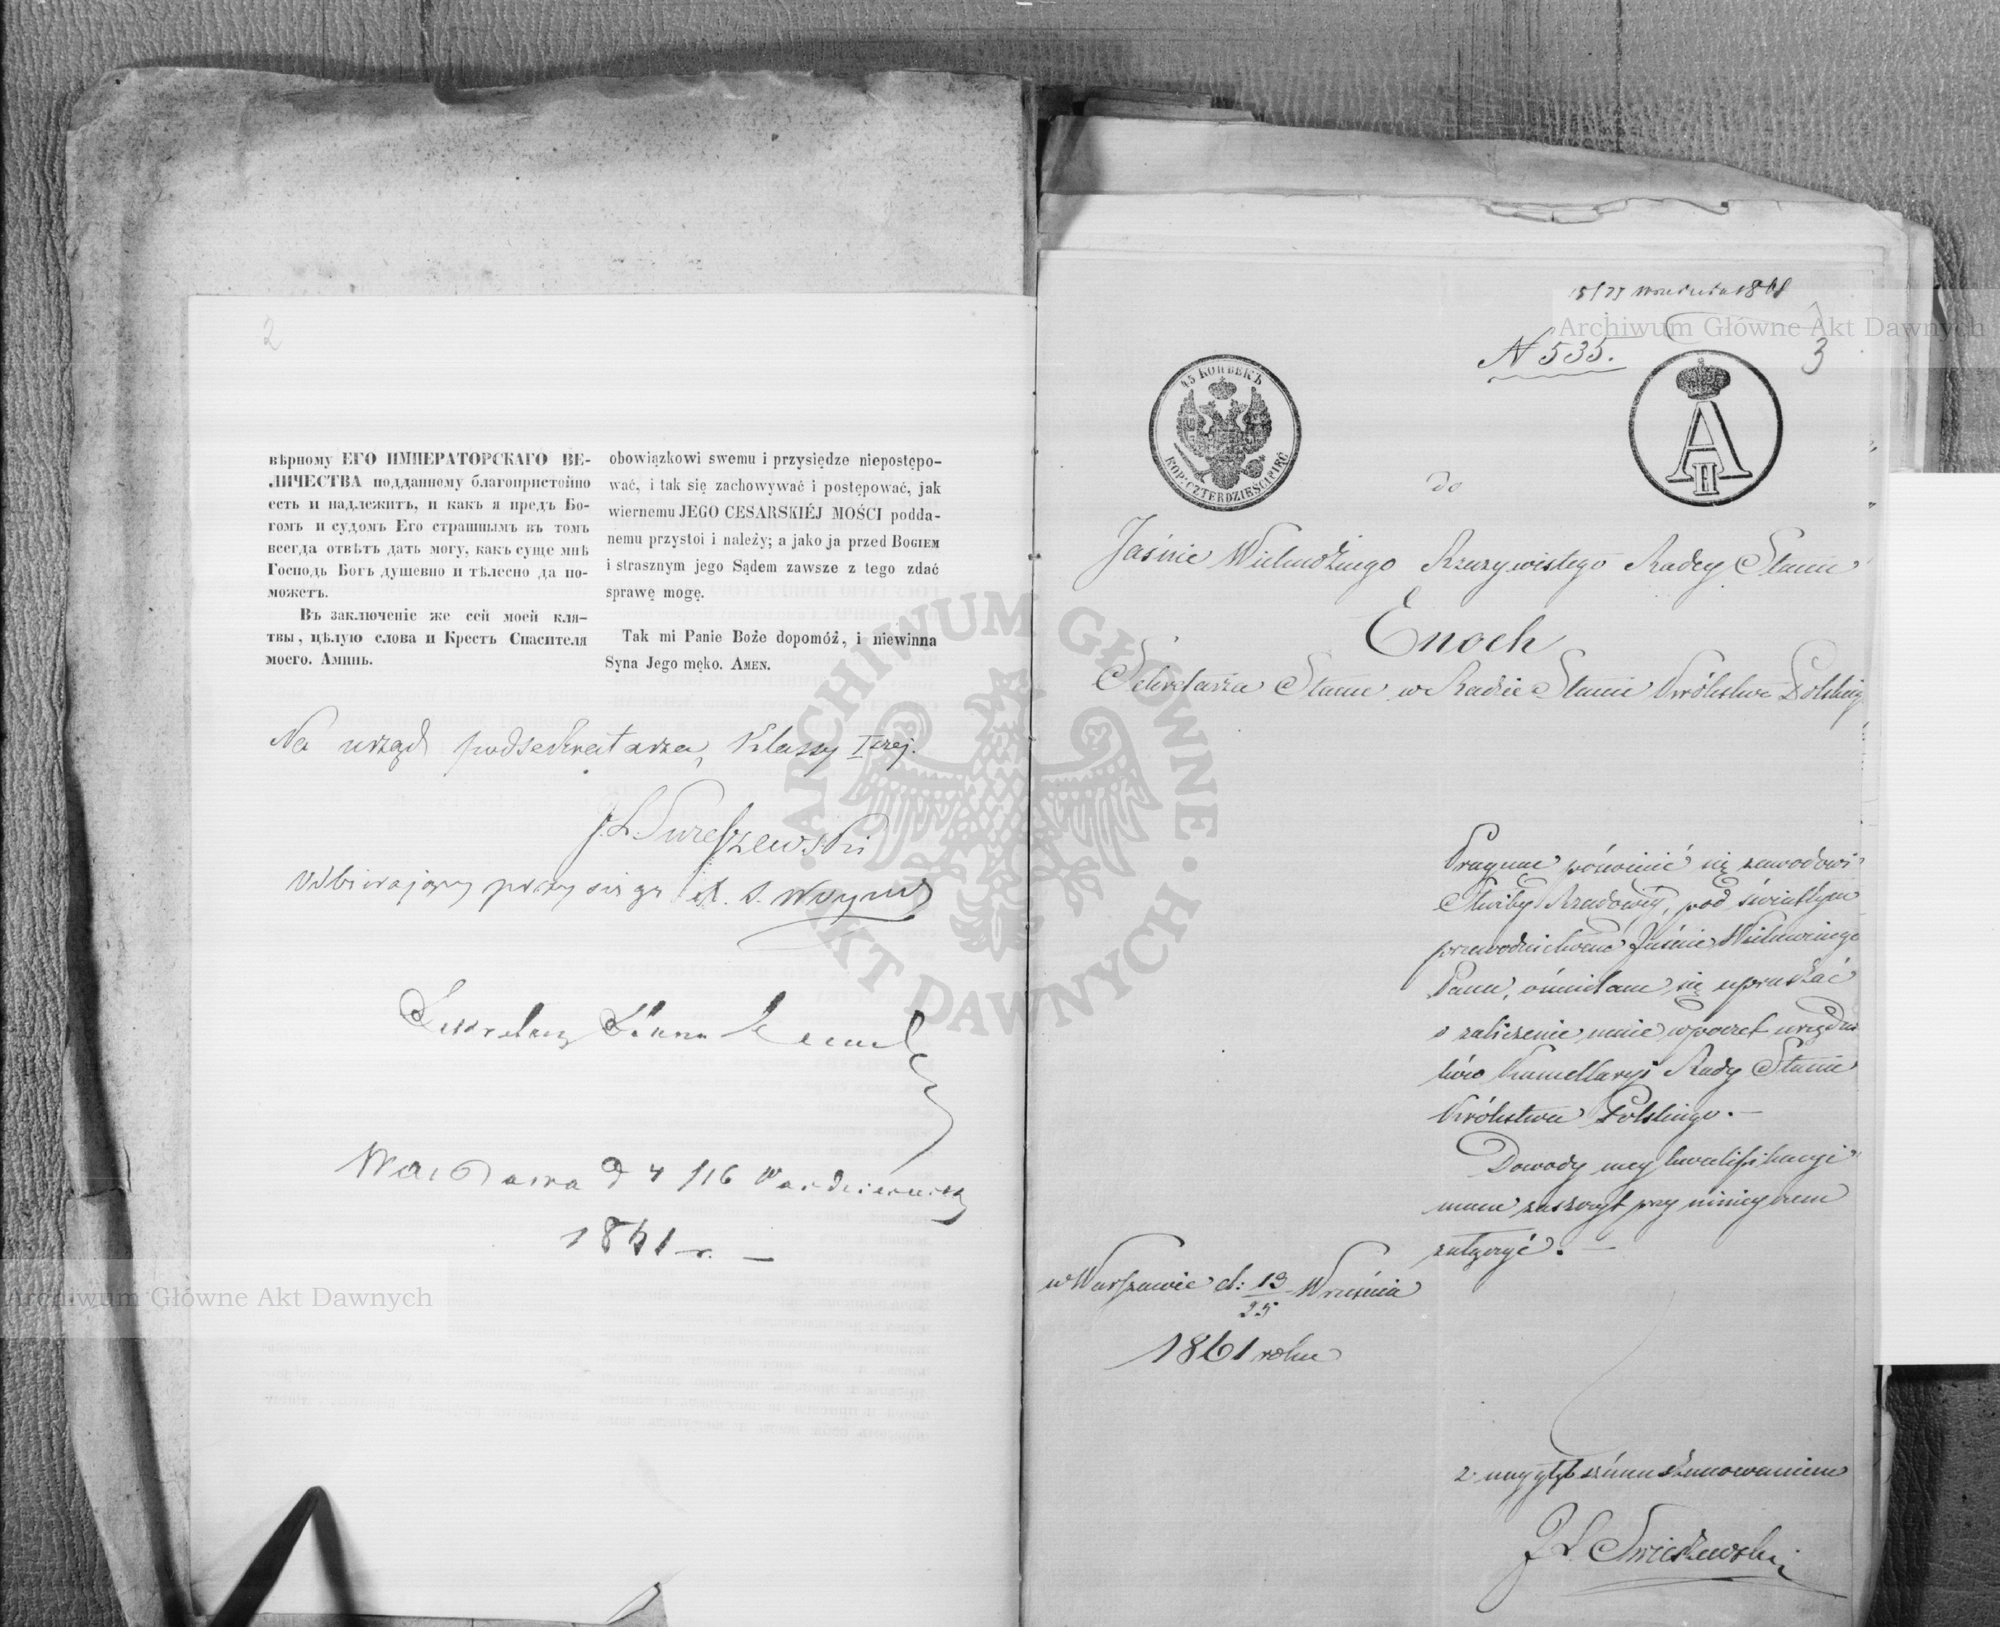 2
вѣрному ЕГО ИМПЕРАТОРСКАГО ВЕ-
ЛИЧЕСТВА подданному благопристойно
есть и надлежитъ, и какъ я предъ Бо-
гомъ и судомъ Его страшнымъ въ томъ
всегда отвѣтъ дать могу, какъ суще мнѣ
Господь Богъ душевно и тѣлесно да по-
можетъ.
Въ заключеніе же сей моей кля-
твы, цѣлую слова и Крестъ Спасителя
моего. Аминь.
obowiązkowi swemu i przysiędze niepostępo-
wać, i tak się zachowywać i postępować, jak
wiernemu JEGO CESARSKIÉJ MOŚCI podda-
nemu przystoi i należy; a jako ja przed BOGIEM
i strasznym jego Sądem zawsze z tego zdać
sprawę mogę.
Tak mi Panie Boże dopomóż, i niewinna
Syna Jego męko. AMEN.
Na urząd podsekretarza, Klassy I szej.
odbierający przysięgę
Sekretarz Stanu
Warszawa d 4/16 Października
1861 r. —
Archiwum Główne Akt Dawnych
ARCHIWUM GŁÓWNE · AKT DAWNYCH ·
Września 1861
Archiwum Główne Akt Dawnych
N 535.
3
45 КОПѢЕКЪ
KOP: CZTERDZIEŚCI PIĘĆ
А II
do
Jaśnie Wielmożnego Rzeczywistego Radcy Stanu
Enoch
Sekretarza Stanu w Radzie Stanu Królestwa Polskiego
Pragnąc poświęcić się zawodowi
Służby Rządowéj, pod światłym
przewodnictwem Jaśnie Wielmożnego
Pana, ośmielam się upraszać
o zaliczenie mnie w poczet urzędni
ków Kancellaryi Rady Stanu
Królestwa Polskiego. —
Dowody mej kwalifikacyi
mam zaszczyt przy niniejszem
załączyć. —
w Warszawie d: 13/25 Września
1861 roku
z najgłębszém uszanowaniem